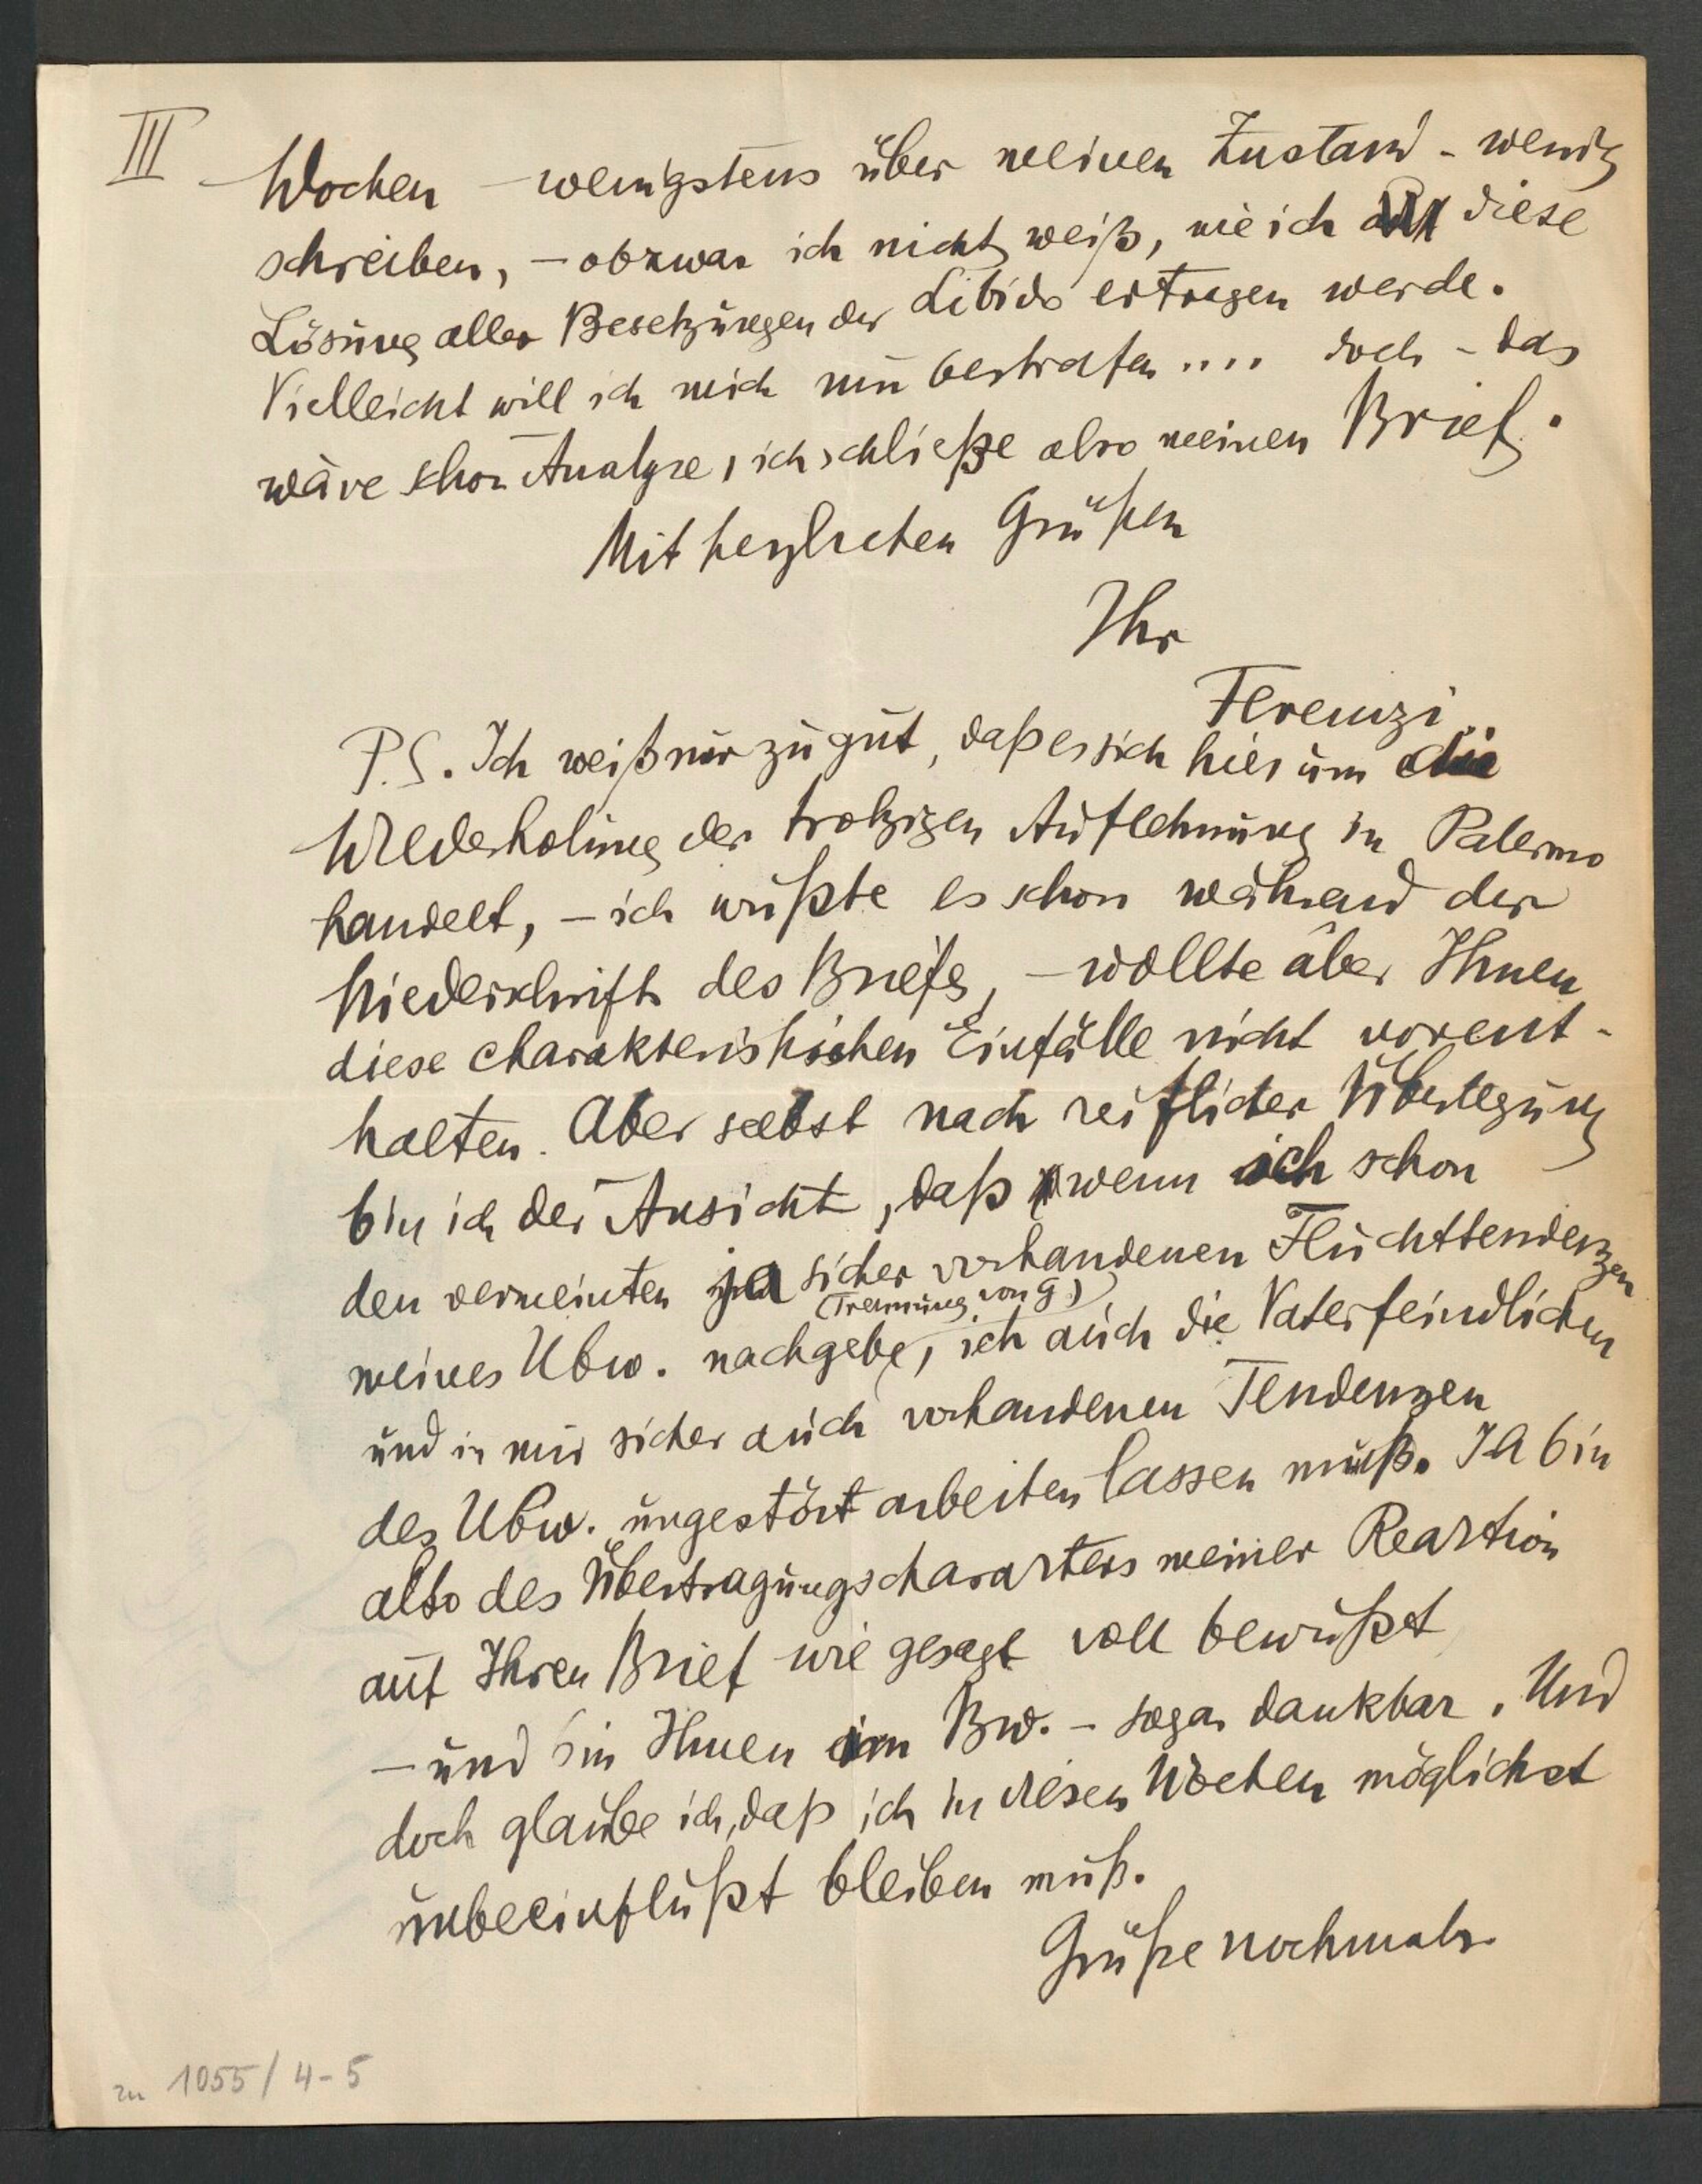 III
Wochen – wenigstens über meinen Zustand – wenig
schreiben, – obzwar ich nicht weiß, wie ich diese
Lösung aller Besetzungen der Libido ertragen werde.
Vielleicht will ich mich nun bestrafen .... doch – das
wäre schon Analyse, ich schließe also meinen Brief.
Mit herzlichen Grüßen
Ihr
Ferenczi
P.S. Ich weiß nur zu gut, daß es sich hier um die
Wiederholung der trotzigen Auflehnung in Palermo
handelt, – ich wußte es schon während der
Niederschrift des Briefes, – wollte aber Ihnen
diese charakteristischen Einfälle nicht vorent-
halten. Aber selbst nach reiflicher Überlegung
bin ich der Ansicht, daß wenn ich schon
den vermeinten ja sicher vorhandenen Fluchttendenzen
(Trennung von G.)
meines Ubw. nachgebe, ich auch die Vaterfeindlichen
und in mir sicher auch vorhandenen Tendenzen
des Ubw. ungestört arbeiten lassen muß. Ich bin
also des Übertragungscharakters meiner Reaktion
auf Ihren Brief wie gesagt voll bewußt
– und bin Ihnen im Bw. – sogar dankbar. Und
doch glaube ich, daß ich in diesen Wochen möglichst
unbeeinflußt bleiben muß.
Grüße nochmals.
zu 1055/4-5